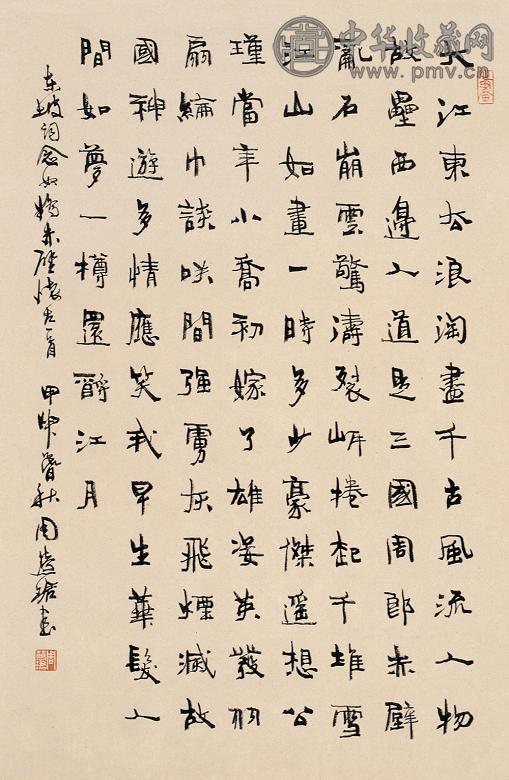 中华收藏网
www.pmv.cn
大江東去浪淘盡千古風流人物
故壘西邊人道是三國周郎赤壁
亂石崩雲驚濤裂岸捲起千堆雪
江山如畫一時多少豪傑遥想公
瑾當年小喬初嫁了雄姿英發羽
扇綸巾談咲間强虜灰飛煙滅故
國神遊多情應笑我早生華髮人
間如夢一樽還酹江月
東坡詞念奴嬌赤壁懷古一首 甲 秋周慧珺書